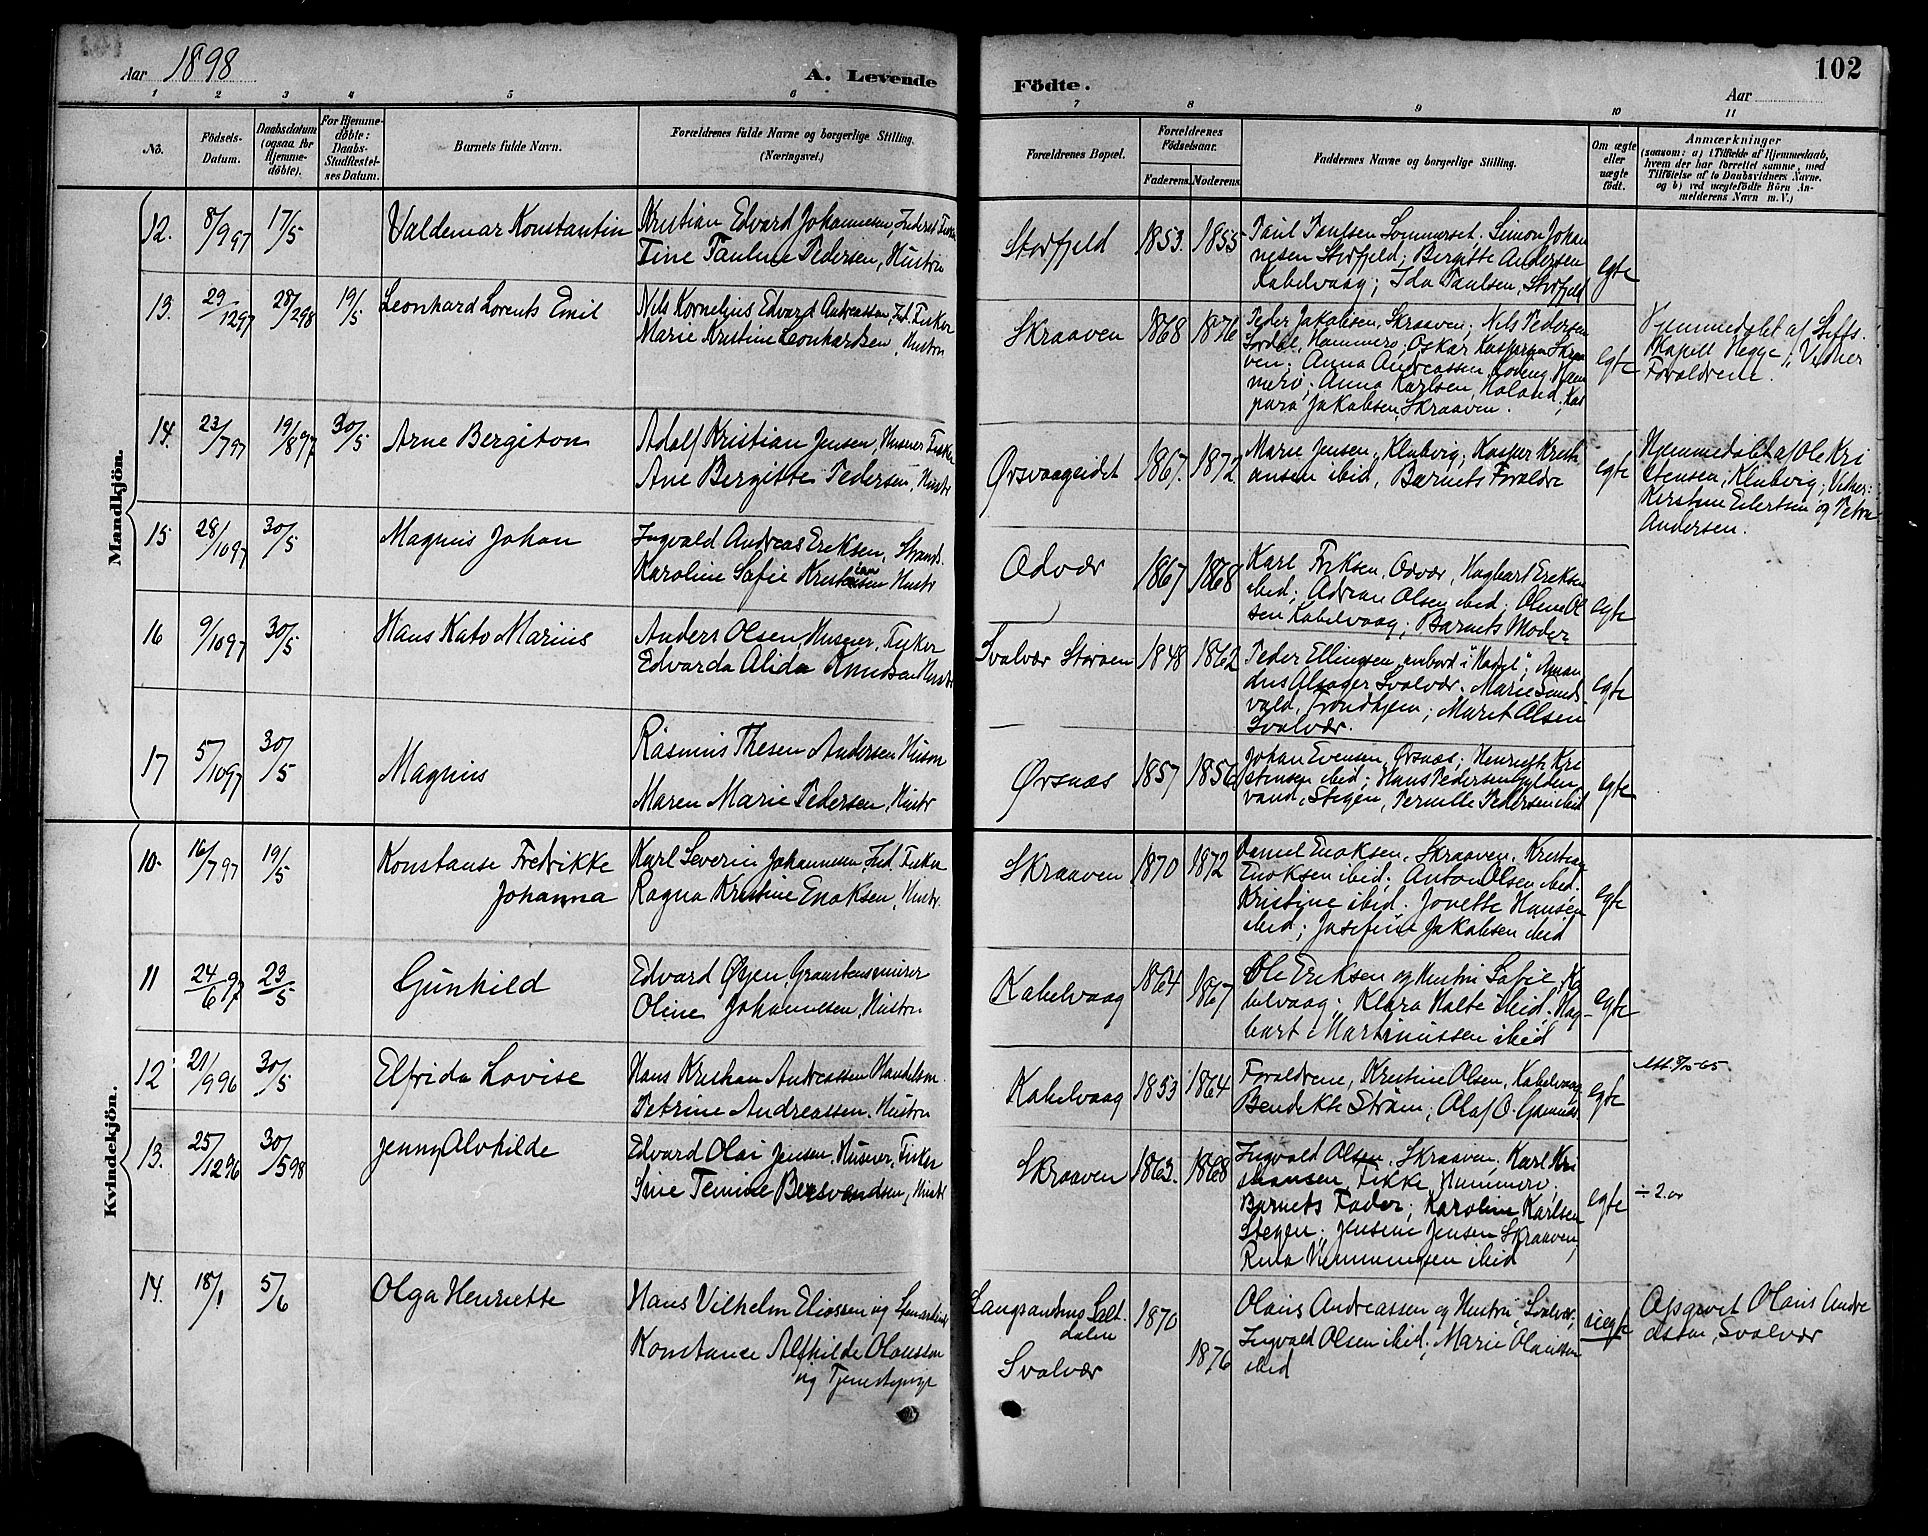 Aar 1898
A. Levende
Födte.
102
Aar
1 2 3 4 5 6 7 8 9 10 11
No.
Födsels-
Datum.
Daabsdatum
(ogsaa for
Hjemme-
døbte).
For Hjemme-
döbte:
Daabs-
Stadfæstel-
ses Datum.
Barnets fulde Navn.
Forældrenes fulde Navne og borgerlige Stilling.
(Næringsvei.)
Forældrenes Bopæl.
Forældrenes
Födselsaar.
Faderens. Moderens.
Faddernes Navne og borgerlige Stilling.
Om ægte
eller
uægte
födt.
Anmærkninger
(saasom: a) i Tilfælde af Hjemmedaab,
hvem der har forrettet samme, med
Tilföielse af to Daabsvidners Navne.
og b) ved uægtefödte Börn An-
melderens Navn m. V.)
Mandkjön.
12. 8/9 97 17/5 Valdemar Konstantin
Kristian Edvard Johannesen, Inderst Fisker
Tine Pauline Pedersen, Hustru
Storfjeld 1853. 1855
Paul Paulsen Sommerset. Simon Johan
nesen Storfjeld; Bergitte Andersen
Kabelvaag; Ida Paulsen, Storfjeld
egte
13. 29/12 97 28/2 98 19/5 Leonhard Lorents Emil
Nils Kornelius Edvard Andreassen, Ind. Fisker
Marie Kristine Leonhardsen, Hustru
Skraaven 1868 1876
Peder Jakobsen, Skraaven; Nils Pedersen
Hammerø; Oskar Kaspersen Skraa
ven; Anna Andreassen, Ham
merø; Anna Karlsen, Holand, Kas
para Jakobsen, Skraaven.
egte
Hjemmedøbt af Stifts.
Kapell. Hegge; Vidner
Forældrene.
14. 23/7 97 19/8 97 30/5 Arne Bergiton
Adolf Kristian Jensen, Husmer Fisker
Ane Bergitte Pedersen, Hustr
Ørsvaageidet 1867. 1872
Marie Jensen, Klubvig; Kasper Kristi
ansen ibid, Barnets Forældre
egte
Hjemmedøbt af Ole Kri
stensen, Klubvig; Vidner:
Kirstine Eilertsen og Petra
Andersen.
15 28/10 97 30/5 Magnus Johan
Ingvald Andreas Eriksen, Strands.
Karoline Sofie Kristiansen Hustr
Odvær 1867 1868
Karl Eriksen, Odvær, Hagbart Eriksen
ibid; Adrian Olsen ibid; Oline Ol
sen Kabelvaag; Barnets Moder
egte
16 9/10 97 30/5 Hans Kato Marius
Anders Olsen, Husmer, Fisker
Edvarda Alida Knudsen Hustr
Svolvær Storøen 1848 1862
Peder Ellingsen, ombord i "Havfel"; Aman
dus Alsager Svolvær. Marie Sunds
vald, Trondhjem; Marit Olsen
Svolvær.
egte
17 5/10 97 30/5 Magnus
Rasmus Thesen Andersen Husm
Maren Marie Pedersen, Hustr
Ørsnæs 1857 1856
Johan Evensen, Ørsnæs; Henrik Kri
stensen ibid; Hans Pedersen Gylden
vand, Steigen, Pernille Pedersen ibid
egte
Kvindekjön.
10. 16/7 97 19/5 Konstanse Fredrikke
Johanna
Karl Severin Johannesen, Ind. Fisker
Ragna Kristine Enoksen, Hustr.
Skraaven 1870 1872
Daniel Enoksen, Skraaven, Kristine
Enoksen ibid; Anton Olsen ibid.
Kristine ibid. Jovette Hansen
ibid; Josefine Jakobsen ibid
egte
11 24/6 97 23/5 Gunhild
Edvard Øyen, Graastensmurer
Oline Johannesen, Hustru
Kabelvaag 1864 1867
Ole Eriksen og Hustru Sofie, Ka
belvaag; Klara Holte ibid. Hag
bart Martinussen ibid
egte
12 21/9 96 30/5 Elfrida Lovise
Hans Kristian Andreassen Handelsm.
Petrine Andreassen, Hustru
Kabelvaag 1853 1864
Forældrene, Kristine Olsen, Kabelvaag
Bendikte Strøm; Olaf O.
egte
13. 25/12 96 30/5 98 Jenny Alvhilde
Edvard Olai Jensen, Husmer, Fisker
Sine Temine Bersvendsen, Hustr
Skraaven 1863. 1868
Ingvald Olsen, Skraaven, Karl Kri
stiansen, Hammerø,
Barnets Fader; Karoline Karlsen
Stegen; Jensine Jensen Skraaven,
Rina Hemmingsen ibid
egte
÷ 2.
14. 18/1 5/6 Olga Henriette
Hans Vilhelm Eliassen ug
Konstanse Alfhilde Olausson
ug Tjenestepige
Salt-
dalen
Svolvær
1870
1876
Olaus Andreassen og Hustru, Svolvær;
Ingvald Olsen ibid; Marie
ibid
uegte
Opgivet Olaus Andre
assen, Svolvær